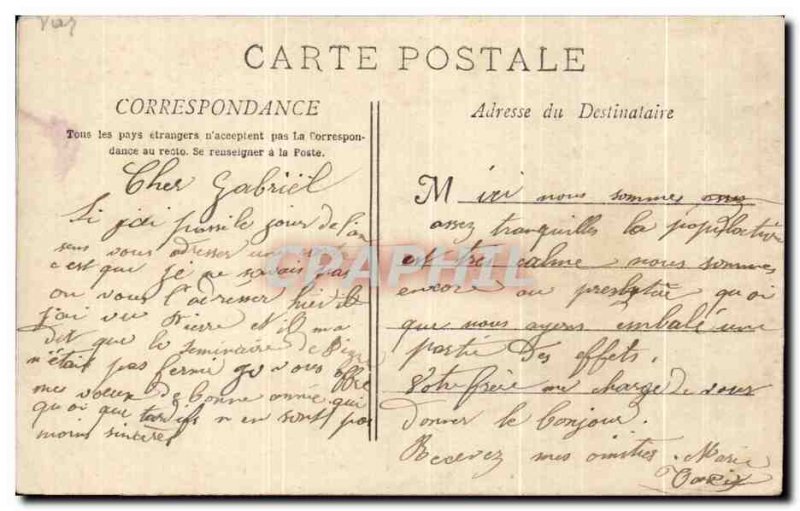 Var
CARTE POSTALE
CORRESPONDANCE
Tous les pays étrangers n'acceptent pas La Correspon-
dance au recto. Se renseigner à la Poste.
Cher Gabriël
Si j'ai passé le jour de l'an
sans vous adresser
c'est que je ne savais pas
ou vous l'adresser hier
j'ai vu Pierre et il m'a
dit que le seminaire de
n'était pas fermé
mes vœux de bonne année qui
quoi que tardifs n'en sont pas
moins sincères
Adresse du Destinataire
M ici nous sommes
assez tranquilles la population
est très calme nous sommes
encore au presbytère quoi
que nous ayons embalé une
partie des effets.
Votre frère me charge de vous
donner le bonjour.
Recevez mes amitiés. Marie
CPAPHIL